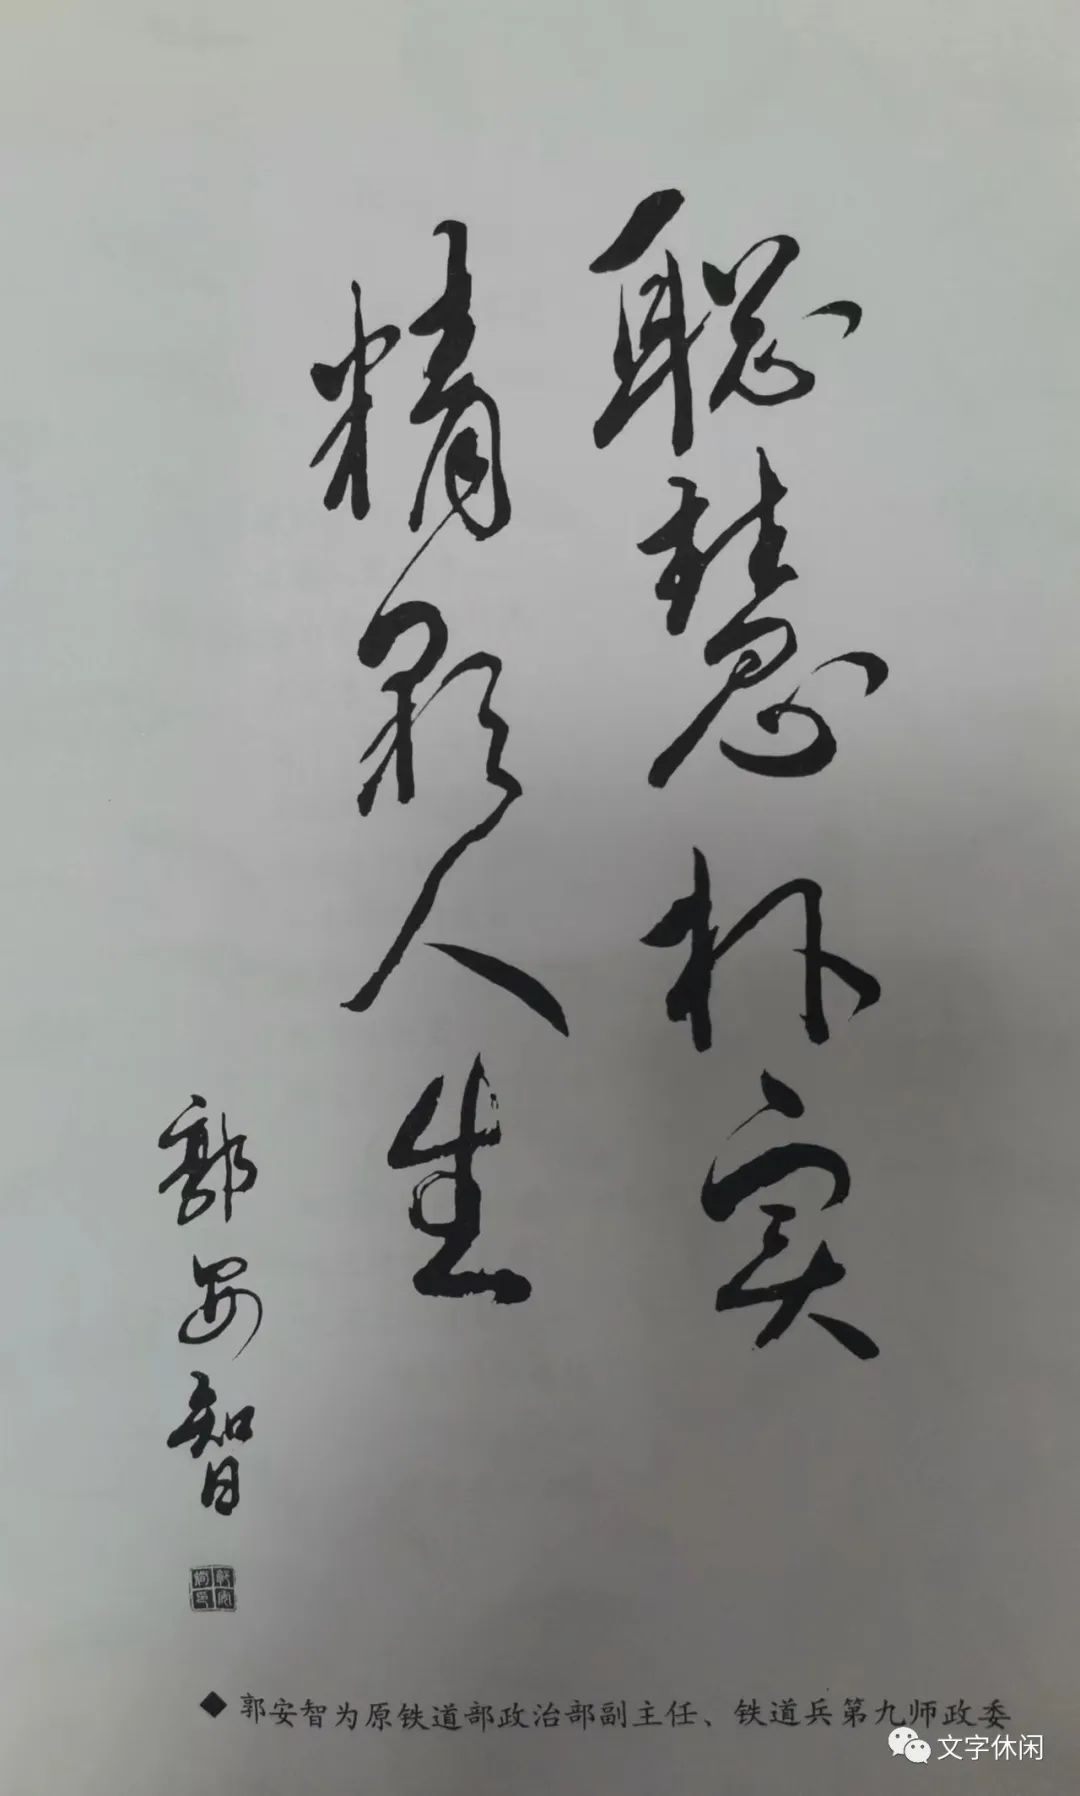 聪慧朴实
精彩人生
郭安智
◆ 郭安智为原铁道部政治部副主任、铁道兵第九师政委
文字休闲